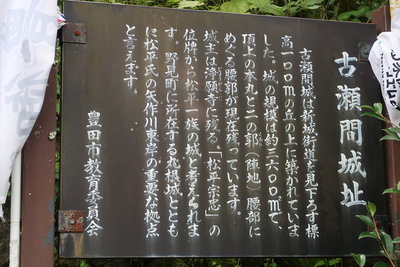 古瀬間城址
古瀬間城は新城街道を見下ろす標
高一〇〇mの丘の上に築かれていま
した。城の規模は約二六〇〇㎡で、
頂上の本丸と二の郭(陣地)腰部に
めぐる腰郭が現在残っています。
城主は浄願寺に残る「松平宗忠」の
位牌から松平一族の城と考えられま
す。野見町に所在する丸根城ととも
に松平氏の矢作川東岸の重要な拠点
と言えます。
豊田市教育委員会